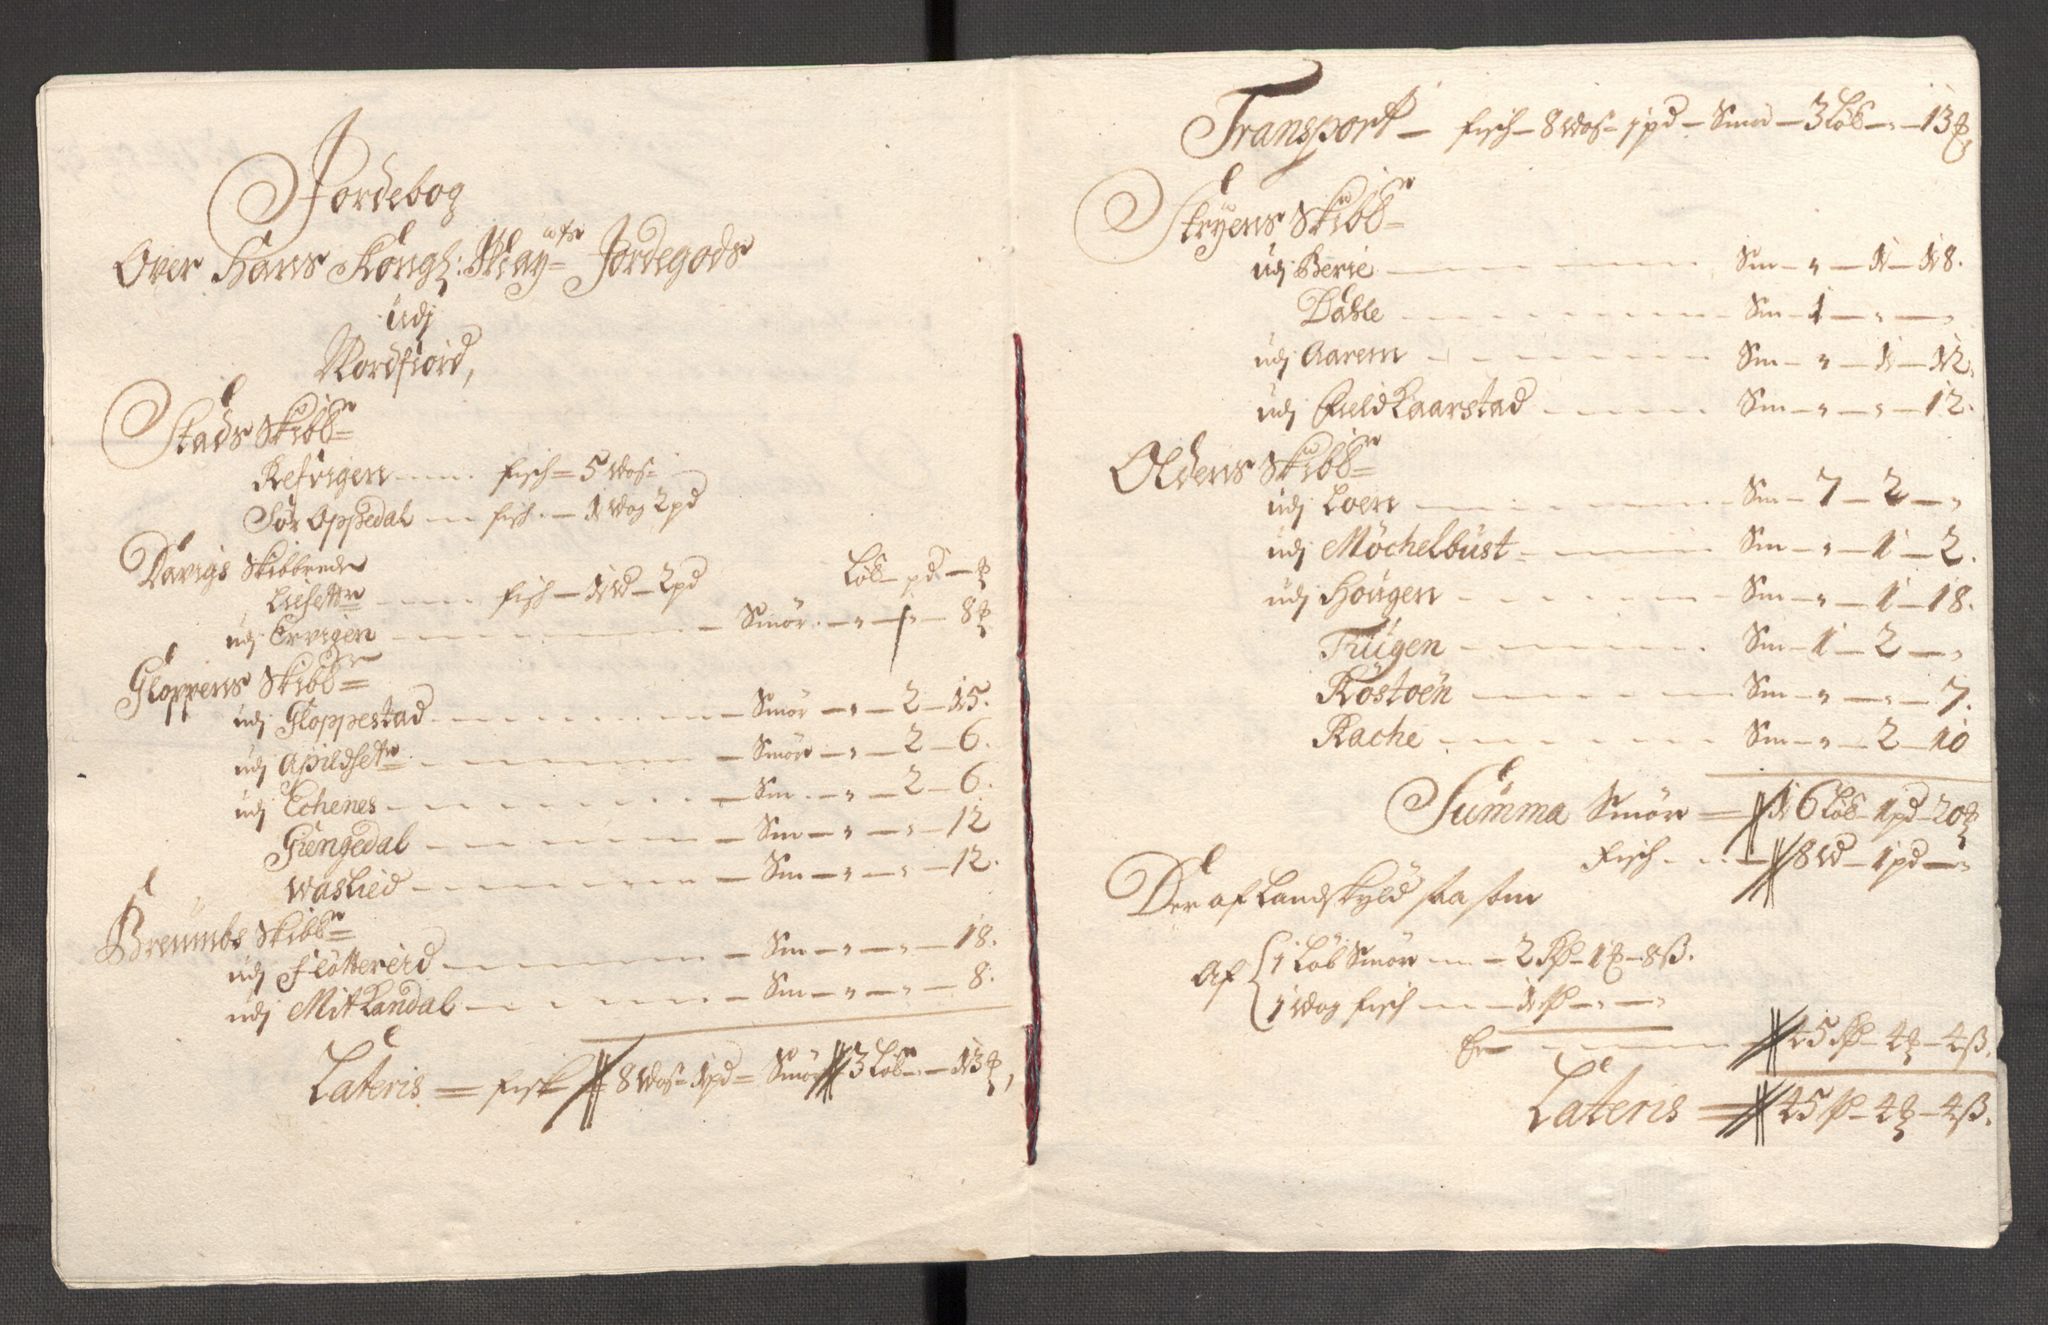 Jordebog
Over Hans Kongl: May:ts Jordegods
udj
Nordfiord,
Stads Skibbr
Refvigen — fisch — 5 wog
Sør Oppedal — fisch — 1 wog 2 pd
Davigs Skibbrede
Løb — pd — ℔
Lisetr — fisch — 1 W — 2 pd
udj Ervigen — Smör — „ — „ — 8 ℔
Gloppens Skibbr
udj Gloppestad — Smör — „ — 2 — 15.
udj Apildsetr — Smör — „ — 2 — 6.
udj Echenes — Sm — „ — 2 — 6.
Giengedal — Sm — „ — „ — 12
Waslied — Sm — „ — „ — 12.
Breumbs Skibbr
udj Flöttereid — Sm — „ — „ — 18.
udj Mitkandal — Sm — „ — „ — 8.
Lateris = fisk 8 wog 1 pd = Smör 3 Løb „ — 13 ℔,
Transport — fisch — 8 wog — 1 pd — Smör — 3 Løb — „ — 13 ℔
Stryens Skibbr
udj Berie — Sm — „ — 1 — 18.
Dahle — Sm — 1 — „ — „
udj Aarem — Sm — „ — 1 — 12.
udj Field Kaarstad — Sm — „ — „ — 12.
Oldens Skibbr
udj Loen — Sm — 7 — 2 — „
udj Möchelbust — Sm — „ — 1 — 2.
udj Hougen — Sm — „ — 1 — 18.
Tiugen — Sm — 1 — 2 — „
Röstoen — Sm — „ — „ — 7.
Rache — Sm — „ — 2 — 10
Summa Smör = 16 Løb — 1 pd — 20 ℔
Fisch — 8 W — 1 pd — „
Der af Landskyld saa som
Af { 1 Løb Smör — 2 Rd — 1 ℔ — 8 ß.
1 wog fisch — 1 Rd — „ — „
Er — 45 Rd — 4 ℔ — 4 ß.
Lateris = 45 Rd — 4 ℔ — 4 ß.